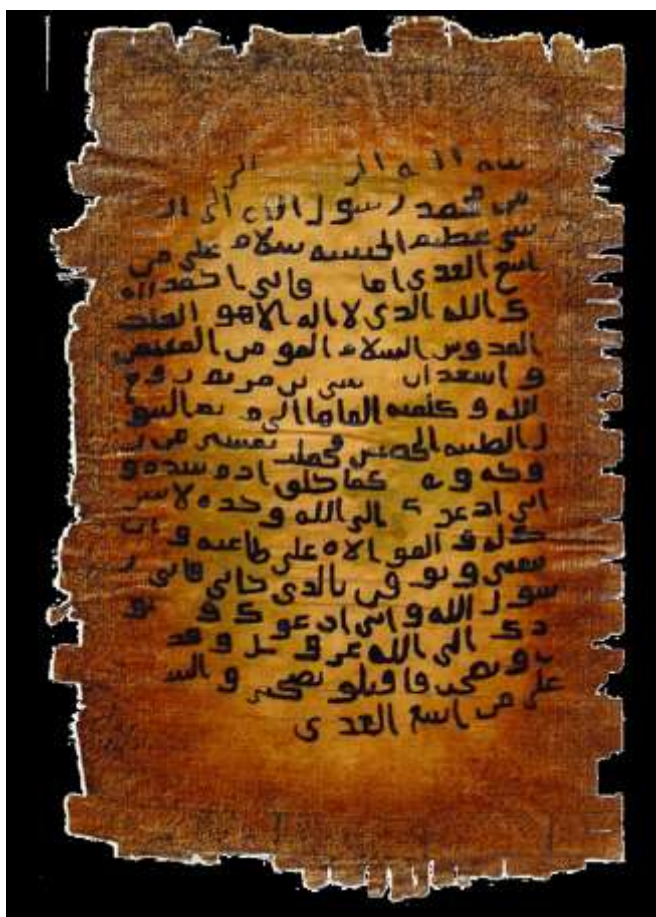 بسم الله الر الر
من محمد رسول الله الى الـ
شى عظيم الحبشه سلام على من
اتبع الهدى اما فانى احمد اليـ
ك الله الذى لا اله الا هو الملك
القدوس السلام المومن المهيمن
و اشهد ان عيسى بن مريم روح
الله و كلمته القاها الى مريم البتو
ل الطيبه الحصينه فحملت بعيسى من ر
وحه و كما خلق ادم بيده و
انى ادعوك الى الله وحده لا شر
يك له و الموالاه على طاعته و ان
تتبعنى و توقن بالذى جانى فانى ر
سول الله و انى ادعوك و
دك الى الله عز و جل و قد
و نصحت فاقبلو نصيحتى و السـ
على من اتبع الهدى